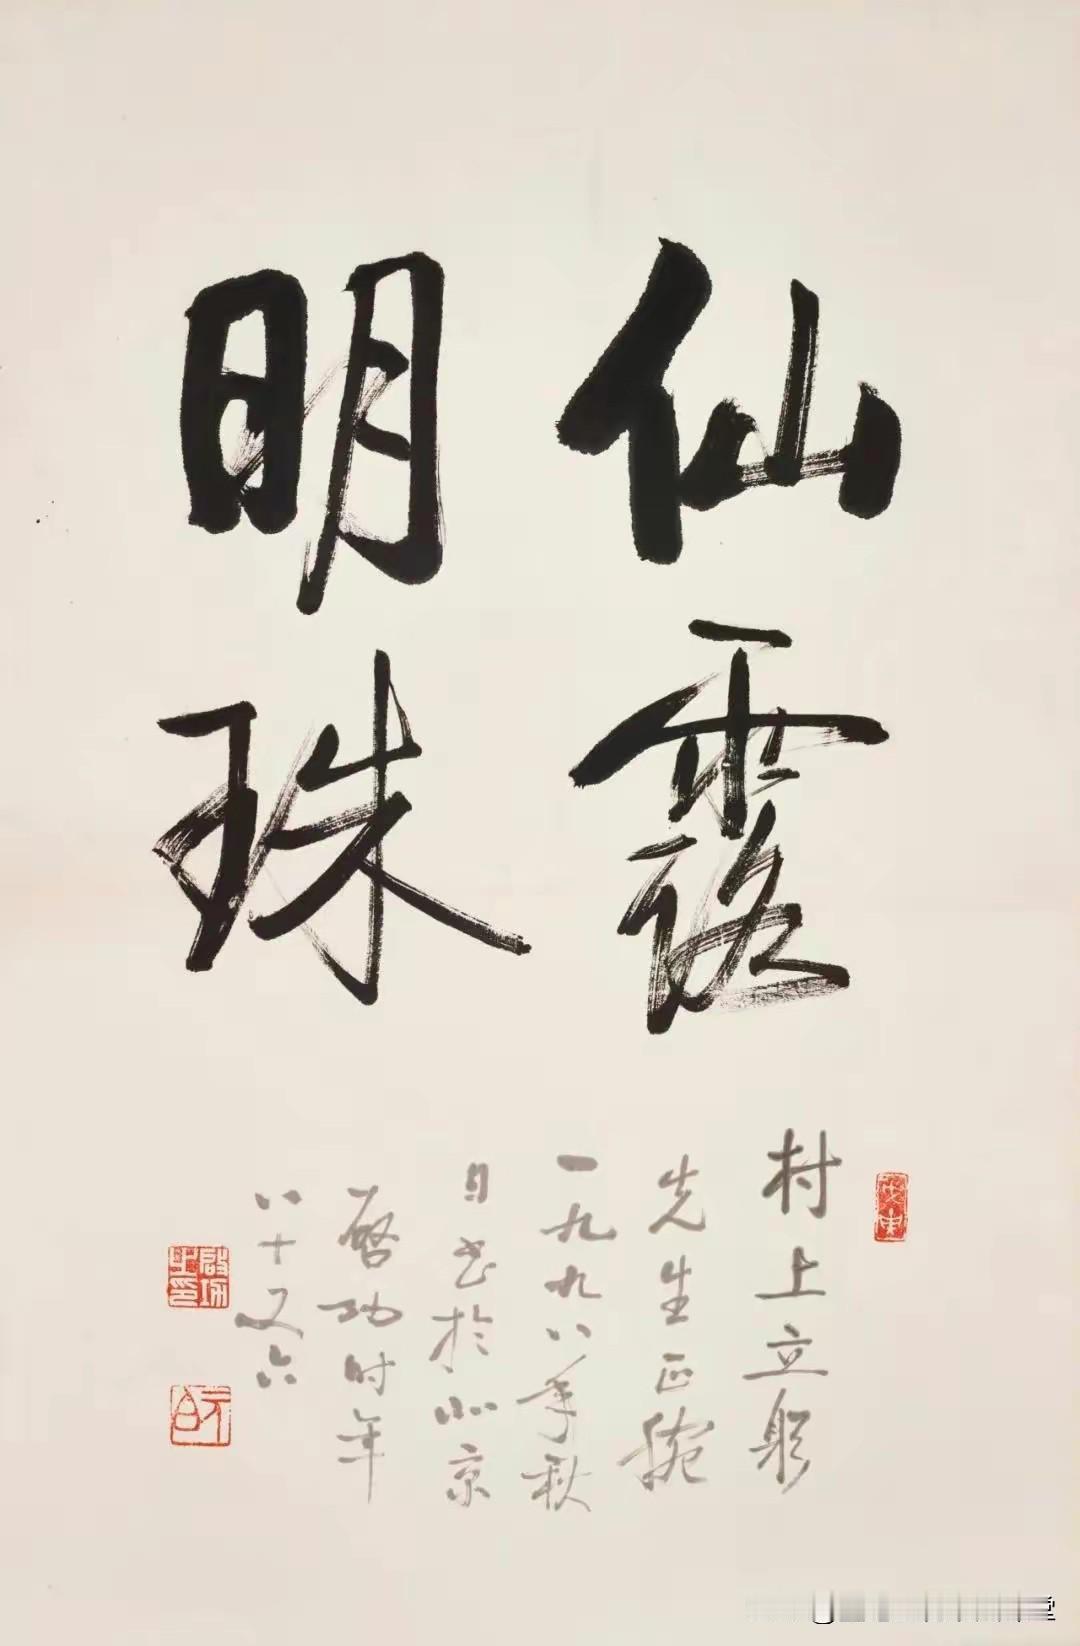 仙露
明珠
村上立躬
先生正腕
一九九八年秋
日书於北京
啓功时年
八十又六
啟功之印
元白